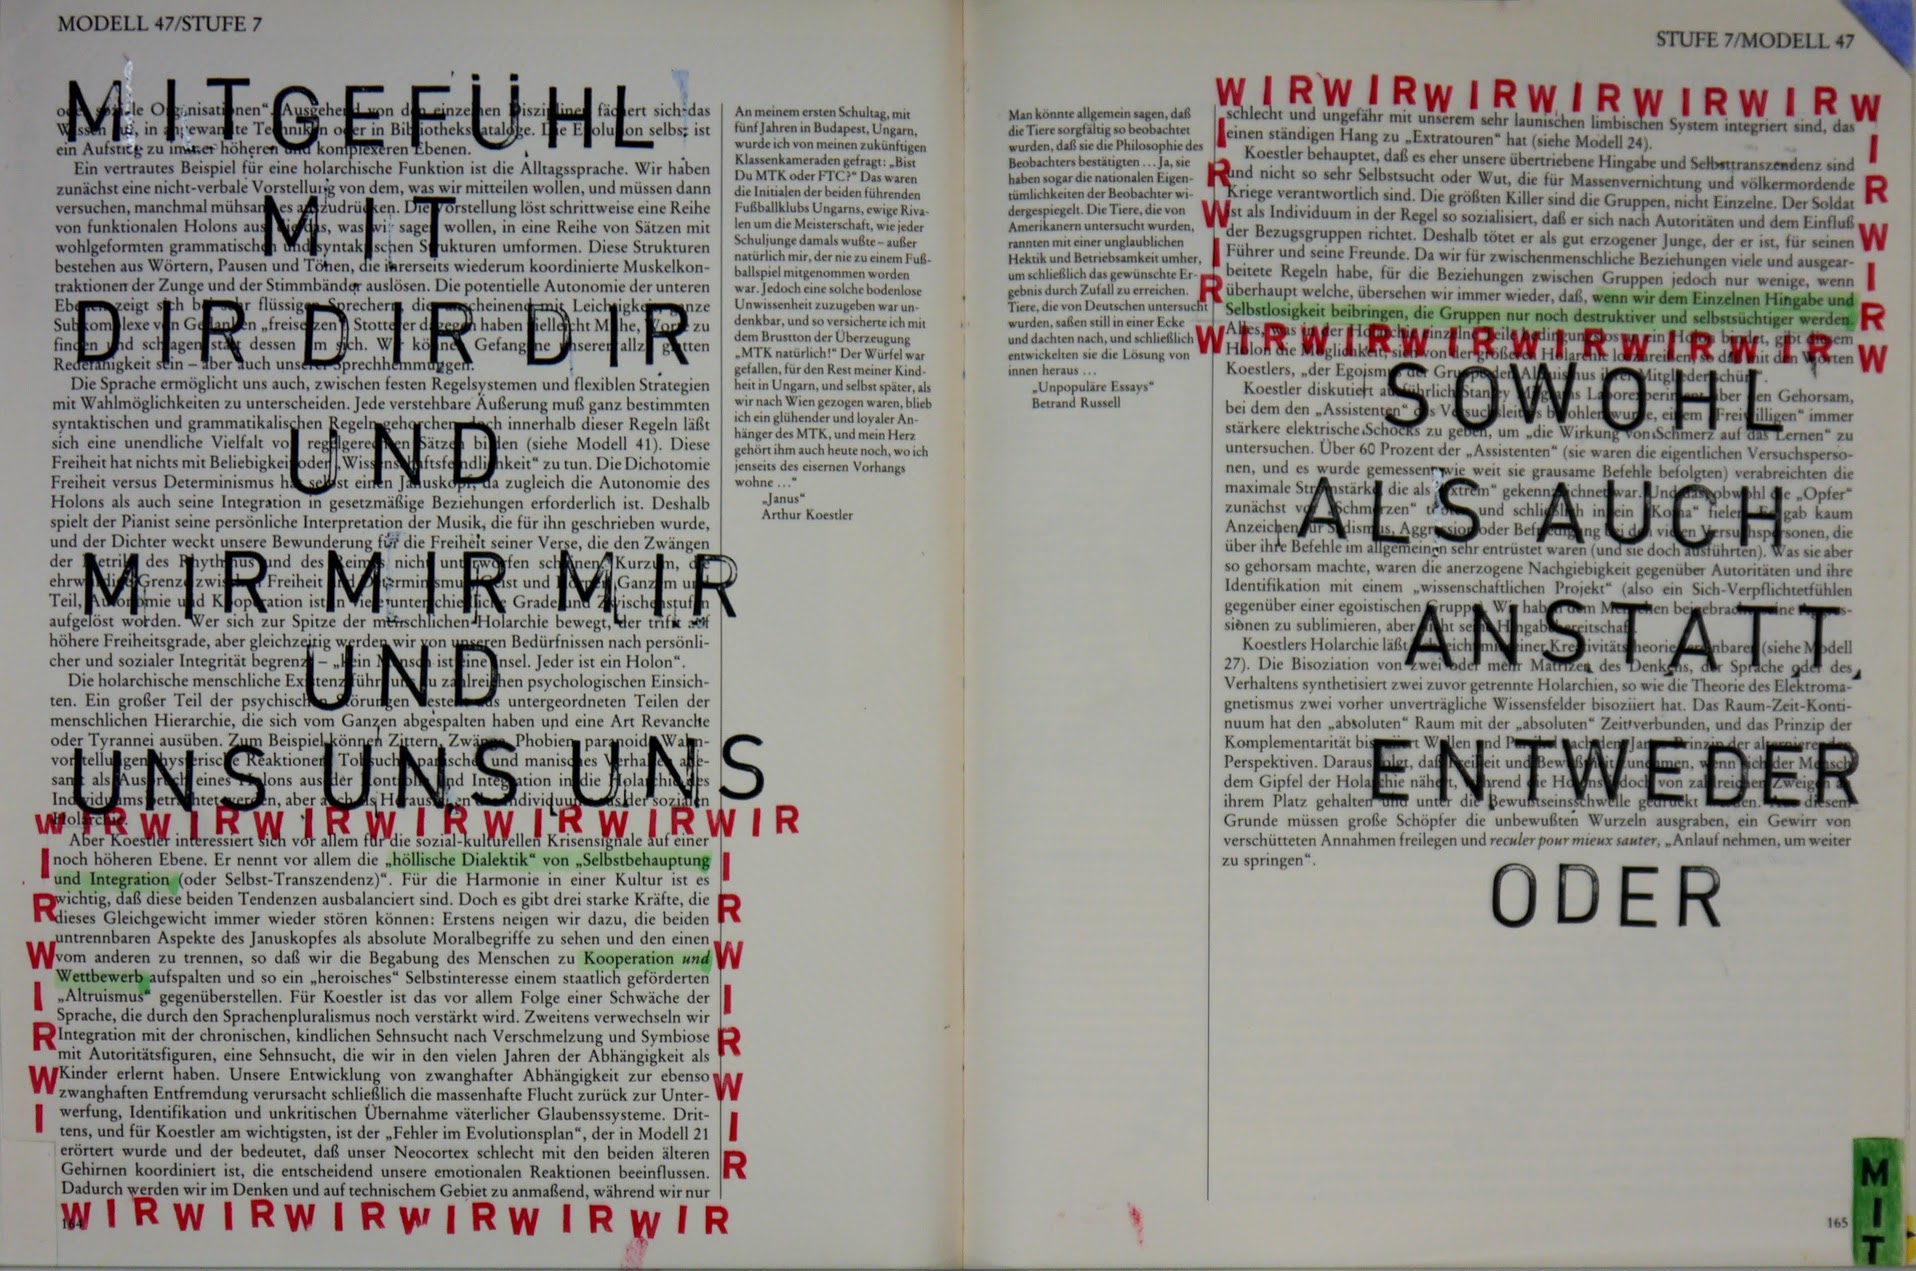 MODELL 47/STUFE 7
MITGEFÜHL
MIT
DIR DIR DIR
UND
MIR MIR MIR
UND
UNS UNS UNS
ein Aufstieg zu immer höheren und komplexeren Ebenen.
Ein vertrautes Beispiel für eine holarchische Funktion ist die Alltagssprache. Wir haben
zunächst eine nicht-verbale Vorstellung von dem, was wir mitteilen wollen, und müssen dann
versuchen, manchmal mühsam, es auszudrücken. Die Vorstellung löst schrittweise eine Reihe
von funktionalen Holons aus, die das, was wir sagen wollen, in eine Reihe von Sätzen mit
wohlgeformten grammatischen und syntaktischen Strukturen umformen. Diese Strukturen
bestehen aus Wörtern, Pausen und Tönen, die ihrerseits wiederum koordinierte Muskelkon-
traktionen der Zunge und der Stimmbänder auslösen. Die potentielle Autonomie der unteren
Redefähigkeit sein – aber auch unsere Sprechhemmungen.
Die Sprache ermöglicht uns auch, zwischen festen Regelsystemen und flexiblen Strategien
mit Wahlmöglichkeiten zu unterscheiden. Jede verstehbare Äußerung muß ganz bestimmten
syntaktischen und grammatikalischen Regeln gehorchen, doch innerhalb dieser Regeln läßt
sich eine unendliche Vielfalt von regelgerechten Sätzen bilden (siehe Modell 41). Diese
Freiheit hat nichts mit Beliebigkeit oder „Wissenschaftsfeindlichkeit“ zu tun. Die Dichotomie
Freiheit versus Determinismus hat selbst einen Januskopf, da zugleich die Autonomie des
Holons als auch seine Integration in gesetzmäßige Beziehungen erforderlich ist. Deshalb
spielt der Pianist seine persönliche Interpretation der Musik, die für ihn geschrieben wurde,
und der Dichter weckt unsere Bewunderung für die Freiheit seiner Verse, die den Zwängen
der Metrik des Rhythmus und des Reimes nicht unterworfen scheinen. Kurzum, die
aufgelöst worden. Wer sich zur Spitze der menschlichen Holarchie bewegt, der trifft auf
höhere Freiheitsgrade, aber gleichzeitig werden wir von unseren Bedürfnissen nach persönli-
cher und sozialer Integrität begrenzt – „kein Mensch ist eine Insel. Jeder ist ein Holon“.
Die holarchische menschliche Existenz führt uns zu zahlreichen psychologischen Einsich-
ten. Ein großer Teil der psychischen Störungen besteht aus untergeordneten Teilen der
menschlichen Hierarchie, die sich vom Ganzen abgespalten haben und eine Art Revanche
oder Tyrannei ausüben. Zum Beispiel können Zittern, Zwänge, Phobien, paranoide Wahn-
Holarchie.
WIRWIRWIRWIRWIRWIRWIRWIRWIR
Aber Koestler interessiert sich vor allem für die sozial-kulturellen Krisensignale auf einer
noch höheren Ebene. Er nennt vor allem die „höllische Dialektik“ von „Selbstbehauptung
und Integration (oder Selbst-Transzendenz)“. Für die Harmonie in einer Kultur ist es
wichtig, daß diese beiden Tendenzen ausbalanciert sind. Doch es gibt drei starke Kräfte, die
dieses Gleichgewicht immer wieder stören können: Erstens neigen wir dazu, die beiden
untrennbaren Aspekte des Januskopfes als absolute Moralbegriffe zu sehen und den einen
vom anderen zu trennen, so daß wir die Begabung des Menschen zu Kooperation und
Wettbewerb aufspalten und so ein „heroisches“ Selbstinteresse einem staatlich geförderten
„Altruismus“ gegenüberstellen. Für Koestler ist das vor allem Folge einer Schwäche der
Sprache, die durch den Sprachenpluralismus noch verstärkt wird. Zweitens verwechseln wir
Integration mit der chronischen, kindlichen Sehnsucht nach Verschmelzung und Symbiose
mit Autoritätsfiguren, eine Sehnsucht, die wir in den vielen Jahren der Abhängigkeit als
Kinder erlernt haben. Unsere Entwicklung von zwanghafter Abhängigkeit zur ebenso
zwanghaften Entfremdung verursacht schließlich die massenhafte Flucht zurück zur Unter-
werfung, Identifikation und unkritischen Übernahme väterlicher Glaubenssysteme. Drit-
tens, und für Koestler am wichtigsten, ist der „Fehler im Evolutionsplan“, der in Modell 21
erörtert wurde und der bedeutet, daß unser Neocortex schlecht mit den beiden älteren
Gehirnen koordiniert ist, die entscheidend unsere emotionalen Reaktionen beeinflussen.
Dadurch werden wir im Denken und auf technischem Gebiet zu anmaßend, während wir nur
IRWIRWI
IRWIRWIR
WIRWIRWIRWIRWIRWIRWIRWIR
164
An meinem ersten Schultag, mit
fünf Jahren in Budapest, Ungarn,
wurde ich von meinen zukünftigen
Klassenkameraden gefragt: „Bist
Du MTK oder FTC?“ Das waren
die Initialen der beiden führenden
Fußballklubs Ungarns, ewige Riva-
len um die Meisterschaft, wie jeder
Schuljunge damals wußte – außer
natürlich mir, der nie zu einem Fuß-
ballspiel mitgenommen worden
war. Jedoch eine solche bodenlose
Unwissenheit zuzugeben war un-
denkbar, und so versicherte ich mit
dem Brustton der Überzeugung
„MTK natürlich!“ Der Würfel war
gefallen, für den Rest meiner Kind-
heit in Ungarn, und selbst später, als
wir nach Wien gezogen waren, blieb
ich ein glühender und loyaler An-
hänger des MTK, und mein Herz
gehört ihm auch heute noch, wo ich
jenseits des eisernen Vorhangs
wohne …“
„Janus“
Arthur Koestler
STUFE 7/MODELL 47
Man könnte allgemein sagen, daß
die Tiere sorgfältig so beobachtet
wurden, daß sie die Philosophie des
Beobachters bestätigten … Ja, sie
haben sogar die nationalen Eigen-
tümlichkeiten der Beobachter wi-
dergespiegelt. Die Tiere, die von
Amerikanern untersucht wurden,
rannten mit einer unglaublichen
Hektik und Betriebsamkeit umher,
um schließlich das gewünschte Er-
gebnis durch Zufall zu erreichen.
Tiere, die von Deutschen untersucht
wurden, saßen still in einer Ecke
und dachten nach, und schließlich
entwickelten sie die Lösung von
innen heraus …
„Unpopuläre Essays“
Betrand Russell
WIRWIRWIRWIRWIRWIRWIRW
IRWIR
IRWIRW
schlecht und ungefähr mit unserem sehr launischen limbischen System integriert sind, das
einen ständigen Hang zu „Extratouren“ hat (siehe Modell 24).
Koestler behauptet, daß es eher unsere übertriebene Hingabe und Selbsttranszendenz sind
und nicht so sehr Selbstsucht oder Wut, die für Massenvernichtung und völkermordende
Kriege verantwortlich sind. Die größten Killer sind die Gruppen, nicht Einzelne. Der Soldat
ist als Individuum in der Regel so sozialisiert, daß er sich nach Autoritäten und dem Einfluß
der Bezugsgruppen richtet. Deshalb tötet er als gut erzogener Junge, der er ist, für seinen
Führer und seine Freunde. Da wir für zwischenmenschliche Beziehungen viele und ausgear-
beitete Regeln habe, für die Beziehungen zwischen Gruppen jedoch nur wenige, wenn
überhaupt welche, übersehen wir immer wieder, daß, wenn wir dem Einzelnen Hingabe und
Selbstlosigkeit beibringen, die Gruppen nur noch destruktiver und selbstsüchtiger werden.
WIRWIRWIRWIRWIRWIRWIR
SOWOHL
ALS AUCH
ANSTATT
ENTWEDER
ODER
Koestlers, „der Egoismus der Gruppe den Altruismus ihrer Mitglieder schürt“.
Koestler diskutiert ausführlich Stanley Milgrams Laborexperiment über den Gehorsam,
bei dem den „Assistenten“ des Versuchsleiters befohlen wurde, einem „Freiwilligen“ immer
stärkere elektrische Schocks zu geben, um „die Wirkung von Schmerz auf das Lernen“ zu
untersuchen. Über 60 Prozent der „Assistenten“ (sie waren die eigentlichen Versuchsperso-
nen, und es wurde gemessen, wie weit sie grausame Befehle befolgten) verabreichten die
maximale Stromstärke, die als „extrem“ gekennzeichnet war. Und das, obwohl die „Opfer“
zunächst vor „Schmerzen“ und schließlich in ein „Koma“ fielen. Es gab kaum
Anzeichen für Sadismus, Aggression oder Befriedigung bei den vielen Versuchspersonen, die
über ihre Befehle im allgemeinen sehr entrüstet waren (und sie doch ausführten). Was sie aber
so gehorsam machte, waren die anerzogene Nachgiebigkeit gegenüber Autoritäten und ihre
Identifikation mit einem „wissenschaftlichen Projekt“ (also ein Sich-Verpflichtetfühlen
gegenüber einer egoistischen Gruppe). Wir haben dem Menschen beigebracht, seine
sionen zu sublimieren, aber nicht seine Hingabebereitschaft.
Koestlers Holarchie läßt sich gleich mit seiner Kreativitätstheorie vereinbaren (siehe Modell
27). Die Bisoziation von zwei oder mehr Matrizen des Denkens, der Sprache oder des
Verhaltens synthetisiert zwei zuvor getrennte Holarchien, so wie die Theorie des Elektroma-
gnetismus zwei vorher unverträgliche Wissensfelder bisoziiert hat. Das Raum-Zeit-Konti-
nuum hat den „absoluten“ Raum mit der „absoluten“ Zeit verbunden, und das Prinzip der
Komplementarität bisoziiert Wellen und Partikel nach dem Janus-Prinzip der alternierenden
Perspektiven. Daraus folgt, daß Freiheit und Bewußtheit zunehmen, wenn sich der Mensch
dem Gipfel der Holarchie nähert, während die Holons jedoch von zahlreichen Zweigen an
ihrem Platz gehalten und unter die Bewußtseinsschwelle gedrückt werden. Aus diesem
Grunde müssen große Schöpfer die unbewußten Wurzeln ausgraben, ein Gewirr von
verschütteten Annahmen freilegen und reculer pour mieux sauter, „Anlauf nehmen, um weiter
zu springen“.
165
MIT